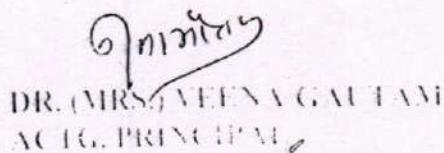 DR. (MRS.) VEENA GAUTAM
ACTG. PRINCIPAL